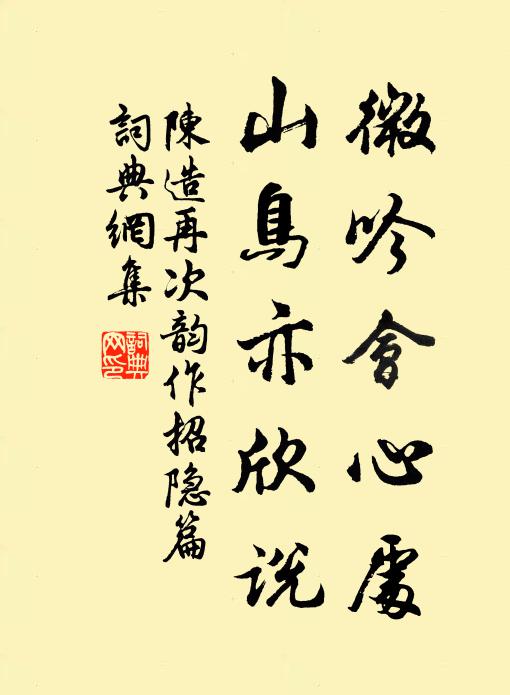 微吟會心處
山鳥亦欣説
陳造再次韵作招隐篇
詞典網集
詞典网印